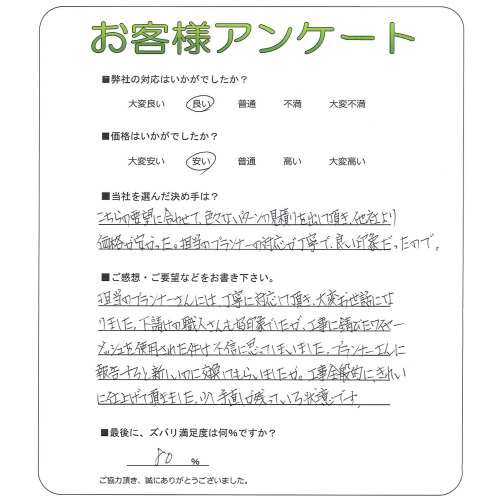 お客様アンケート
■弊社の対応はいかがでしたか?
大変良い 良い 普通 不満 大変不満
■価格はいかがでしたか?
大変安い 安い 普通 高い 大変高い
■当社を選んだ決め手は?
こちらの要望に合わせて、色々なパターンの見積りを出して頂き、他社より
価格が安かった。担当のプランナーの対応が丁寧で、良い印象だったので。
■ご感想・ご要望などをお書き下さい。
担当のプランナーさんには、丁寧に対応して頂き、大変お世話にな
りました。下請けの職人さんも好印象だったが、工事に錆びたワイヤー
メッシュを使用された件は不信に思ってしまいました。プランナーさんに
報告すると、新しいのに交換してもらいましたが。工事全般的に、きれい
に仕上げて頂きました。少し手直しが残っている状態です。
■最後に、ズバリ満足度は何%ですか?
80 %
ご協力頂き、誠にありがとうございました。